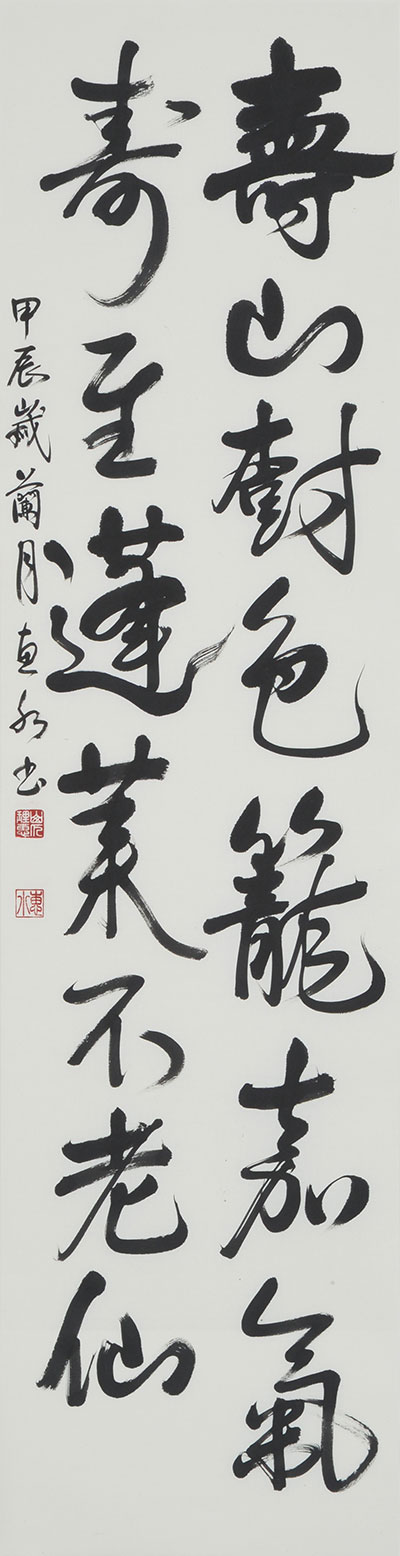 壽山樹色籠嘉氣
壽至蓬萊不老仙
甲辰歲蘭月恵水書
恵水